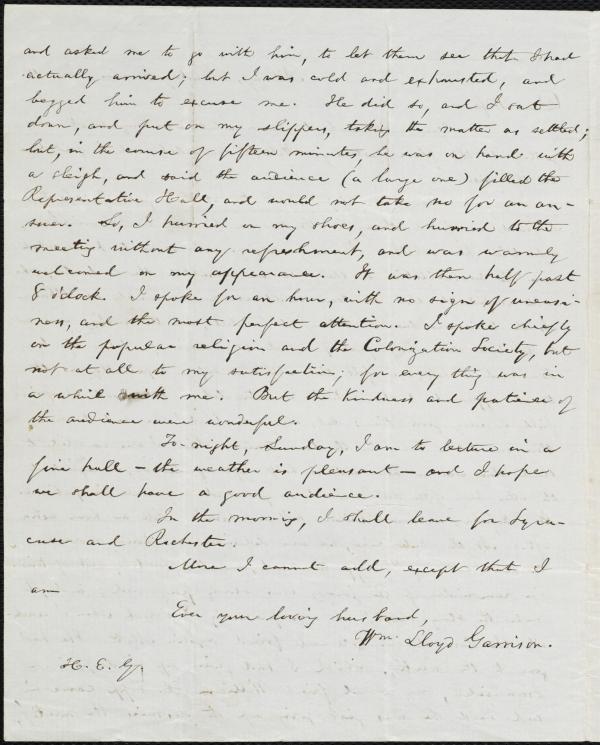 and asked me to go with him, to let them see that I had
actually arrived; but I was cold and exhausted, and
begged him to excuse me. He did so, and I sat
down, and put on my slippers, taking the matter as settled;
but, in the course of fifteen minutes, he was on hand with
a sleigh, and said the audience (a large one) filled the
Representative Hall, and would not take no for an an-
swer. So, I hurried on my shoes, and hurried to the
meeting without any refreshment, and was warmly
welcomed on my appearance. It was then half past
8 o'clock. I spoke for an hour, with no sign of uneasi-
ness, and the most perfect attention. I spoke chiefly
on the popular religion and the Colonization Society, but
not at all to my satisfaction; for every thing was in
a whirl with me. But the kindness and patience of
the audience were wonderful.
To-night, Sunday, I am to lecture in a
fine hall — the weather is pleasant — and I hope
we shall have a good audience.
In the morning, I shall leave for Syra-
cuse and Rochester.
More I cannot add, except that I
am
Ever your loving husband,
Wm. Lloyd Garrison.
H. E. G.